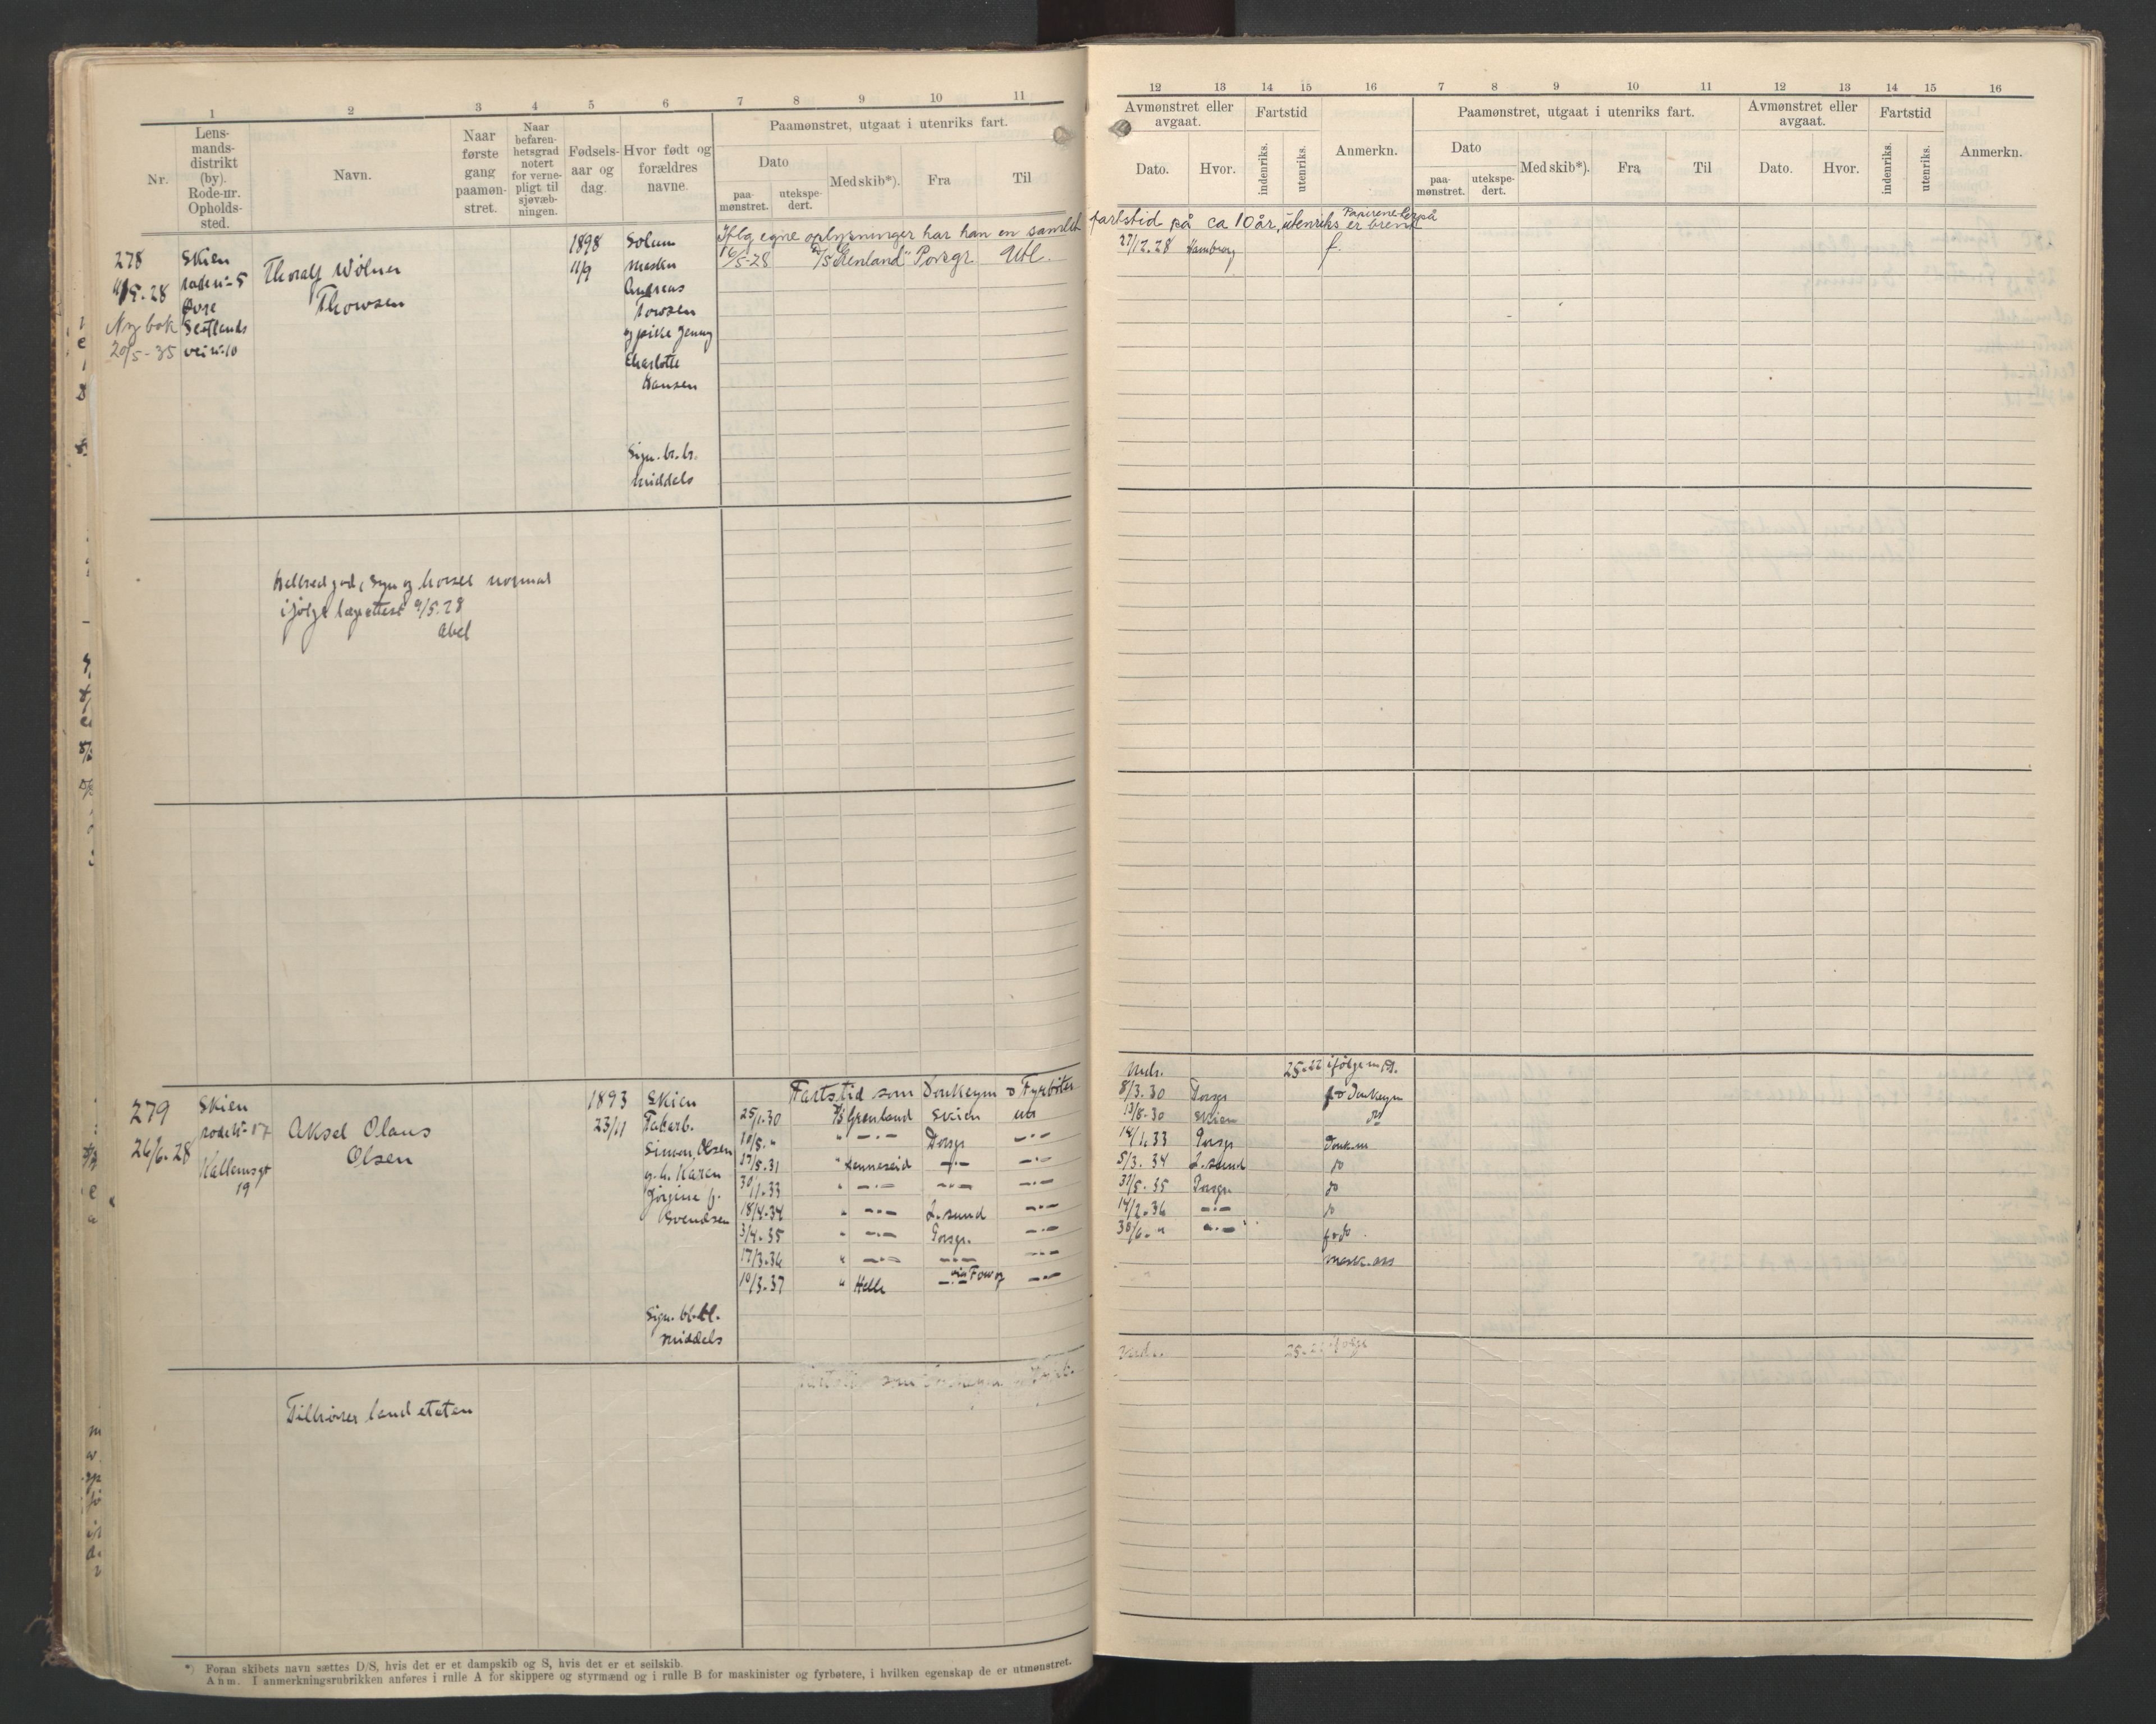 1 2 3 4 5 6 7 8 9 10 11
Nr.
Lens-
mands-
distrikt
(by).
Rode-nr.
Opholds-
sted.
Navn.
Naar
første
gang
paamøn-
stret.
Naar
befaren-
hetsgrad
notert
for verne-
pligt til
sjøvæb-
ningen.
Fødsels-
aar og
dag.
Hvor født og
forældres
navne.
Paamønstret, utgaat i utenriks fart.
Dato
paa-
mønstret.
utekspe-
dert.
Med skib*).
Fra
Til
278
Skien
rode nr 5
veinr. 10
Ny bok
20/5-35
Thoralf Wølner
Thowsen
1898
11/9
Solum
Andreas
Towsen
og pike Jenny
Charlotte
Hansen
Sign. br. br.
middels
Iflg egne oplysninger har han en samlet
16/5-28 D/S "Grenland" Porsgr. Utl.
Helbred god, Syn og hørsel normal
ifølge lægeattest 9/5.28
Abel
279
26/6.28
Skien
rode nr 17
19
Aksel Olaus
Olsen
1893
23/11
Skien
Simon Olsen
og h. Karen
Jørgine f.
Svendsen
Sign. bl. bl.
middels
Fartstid som Donkeym o Fyrbøter
25/1.30 D/S Grenland Skien utl
10/5. " " -·- Porsgr -·-
17/5.31 " Henneseid -·- -·-
30/11.33 " -·- -·- -·-
18/4.34 " -·- L.sund -·-
3/4.35 " -·- Porsgr. -·-
17/3.36 " -·- -·- -·-
10/3.37 " Helle -·- -·-
Tilhører landetaten
*) Foran skibets navn sættes D/S, hvis det er et dampskib og S, hvis det er et seilskib.
Anm. I anmerkningsrubrikken anføres i rulle A for skippere og styrmænd og i rulle B for maskinister og fyrbøtere, i hvilken egenskap de er utmønstret.
12 13 14 15 16 7 8 9 10 11 12 13 14 15 16
Avmønstret eller
avgaat.
Dato.
Hvor.
Fartstid
indenriks.
utenriks.
Anmerkn.
Paamønstret, utgaat i utenriks fart.
Dato
paa-
mønstret.
utekspe-
dert.
Med skib*).
Fra
Til
Avmønstret eller
avgaat.
Dato.
Hvor.
Fartstid
indenriks.
utenriks.
Anmerkn.
fartstid på ca 10 år, utenriks Papirene er brent
27/12.28 Hamburg f.
25-22 ifølge
8/3.30 Porsgr f o Donkeym
13/8-30 Skien do
14/1.33 Porsgr Donk.m
5/3.34 L.sund do
31/5.35 Porsgr. do
14/2.36 -·- do
30/6. " " -·- f o do.
mask. ass
25-22 ifølge